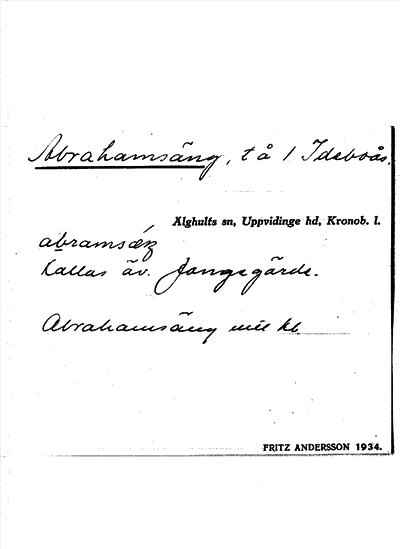 Abrahamsäng, t å 1 Ideboås.
Älghults sn, Uppvidinge hd, Kronob. l.
abramsǽŋ
kallas äv. Jangegärde.
Abrahamsäng kl.
FRITZ ANDERSSON 1934.